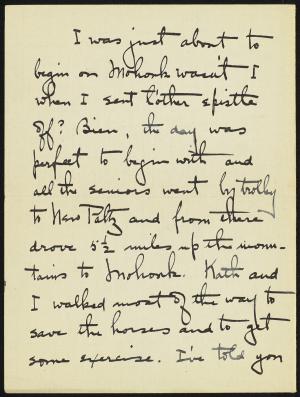 I was just about to
begin on Mohonk wasn't I
when I sent t'other epistle
off? Bien, the day was
perfect to begin with and
all the seniors went by trolley
to New Paltz and from there
drove 5½ miles up the moun-
tains to Mohonk. Kath and
I walked most of the way to
save the horses and to get
some exercise. I've told you